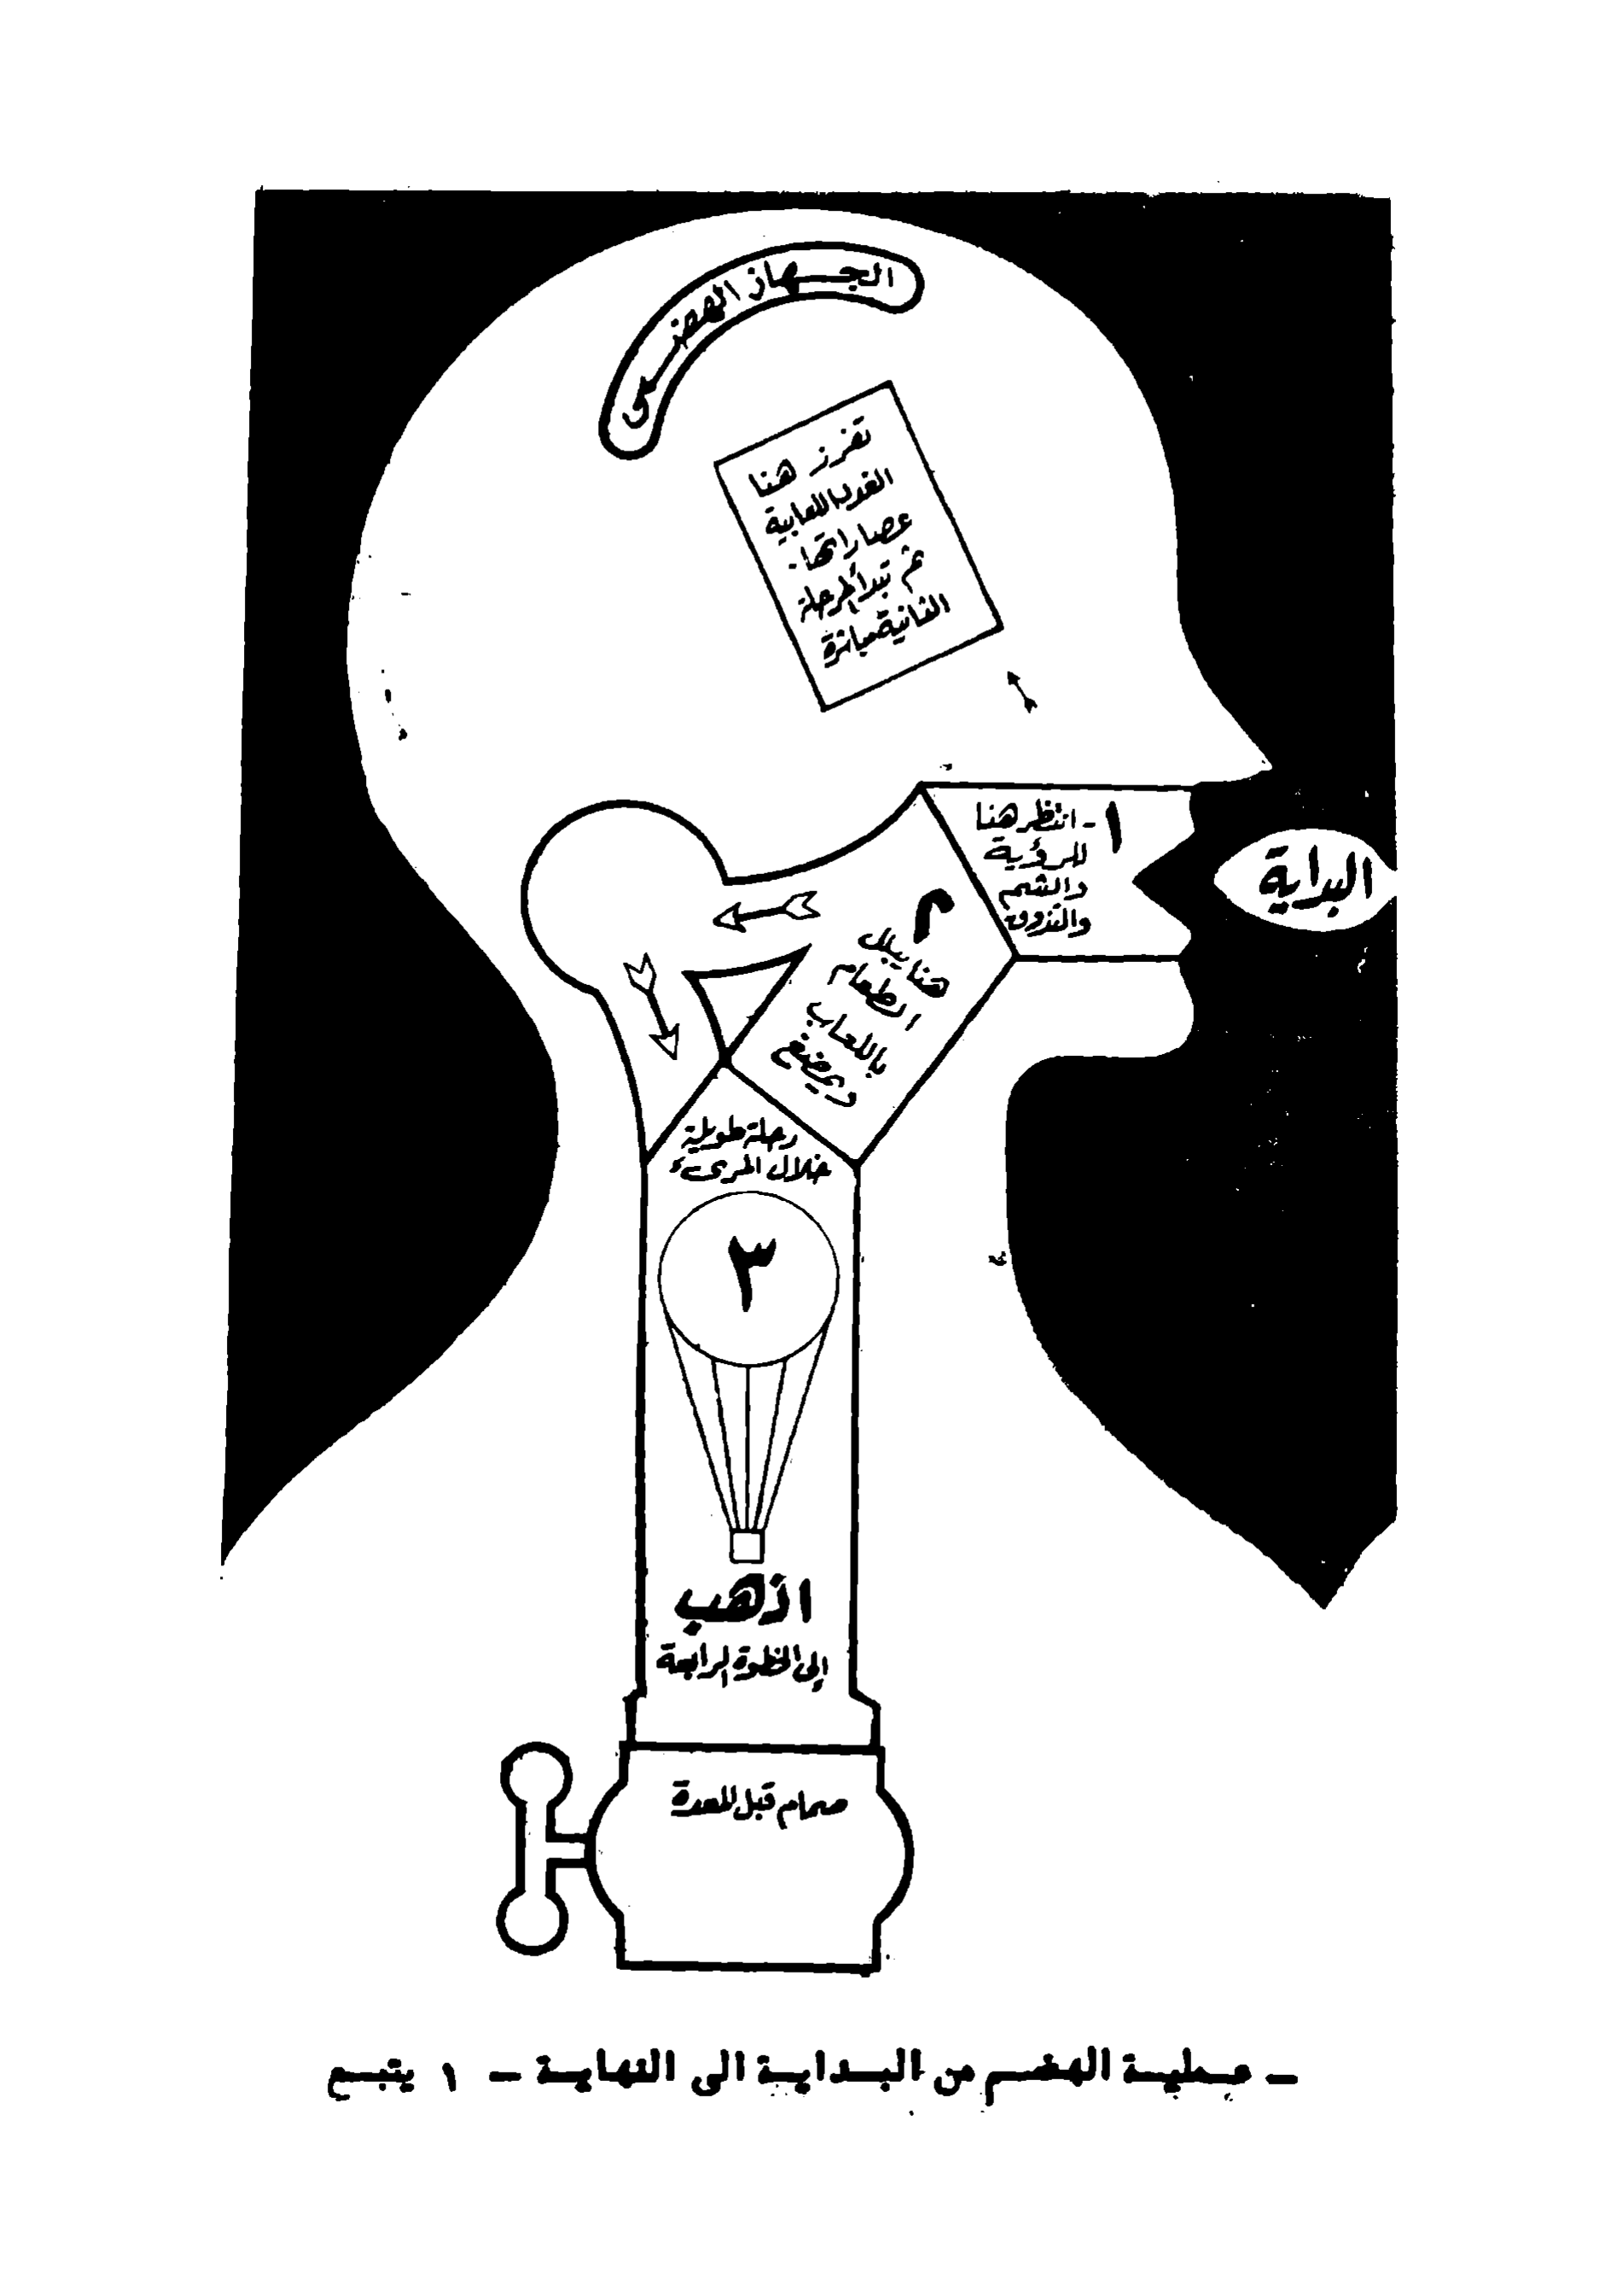 الجهاز الهضمي
تفرز هنا
الغدد اللعابية
عصاراتها .
ثم تبدأ المرحلة
الثانية مباشرة
البداية
١ - انتظر هنا
للرؤية
والشم
والتذوق
٢
هنا يبلل
الطعام
باللعاب
ويمضغ
رحلة طويلة
خلال المرىء
٣
اذهب
إلى الخطوة الرابعة
صمام قبل المعدة
- عملية الهضم من البداية الى النهاية - ١ يتبع